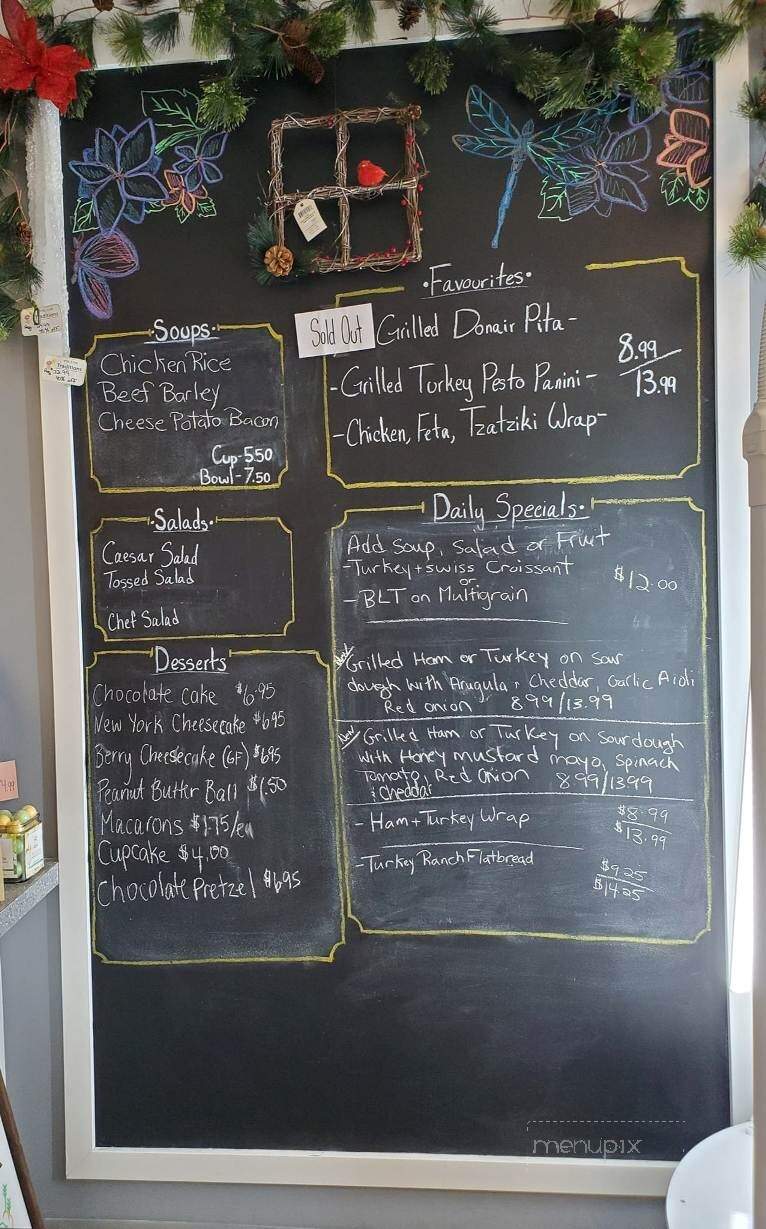 ·Favourites·
Sold Out
Grilled Donair Pita-
-Grilled Turkey Pesto Panini-
8.99
13.99
-Chicken, Feta, Tzatziki Wrap-
·Soups·
Chicken Rice
Beef Barley
Cheese Potato Bacon
Cup-5.50
Bowl-7.50
·Salads·
Caesar Salad
Tossed Salad
Chef Salad
Desserts
Chocolate cake $6.95
New York Cheesecake $6.95
Berry Cheesecake (GF) $6.95
Peanut Butter Ball $1.50
Macarons $1.75/ea
Cupcake $4.00
Chocolate Pretzel $6.95
Daily Specials·
Add Soup, Salad or Fruit
-Turkey+swiss Croissant
or
-BLT on Multigrain
$12.00
New!
Grilled Ham or Turkey on sour
dough with Arugula, Cheddar, Garlic Aioli
Red onion 8.99/13.99
New!
Grilled Ham or Turkey on sourdough
with Honey mustard mayo, spinach
Tomato, Red Onion 8.99/13.99
& cheddar
- Ham+Turkey Wrap
$8.99
$13.99
-Turkey Ranch Flatbread
$9.25
$14.25
4.99
menupix